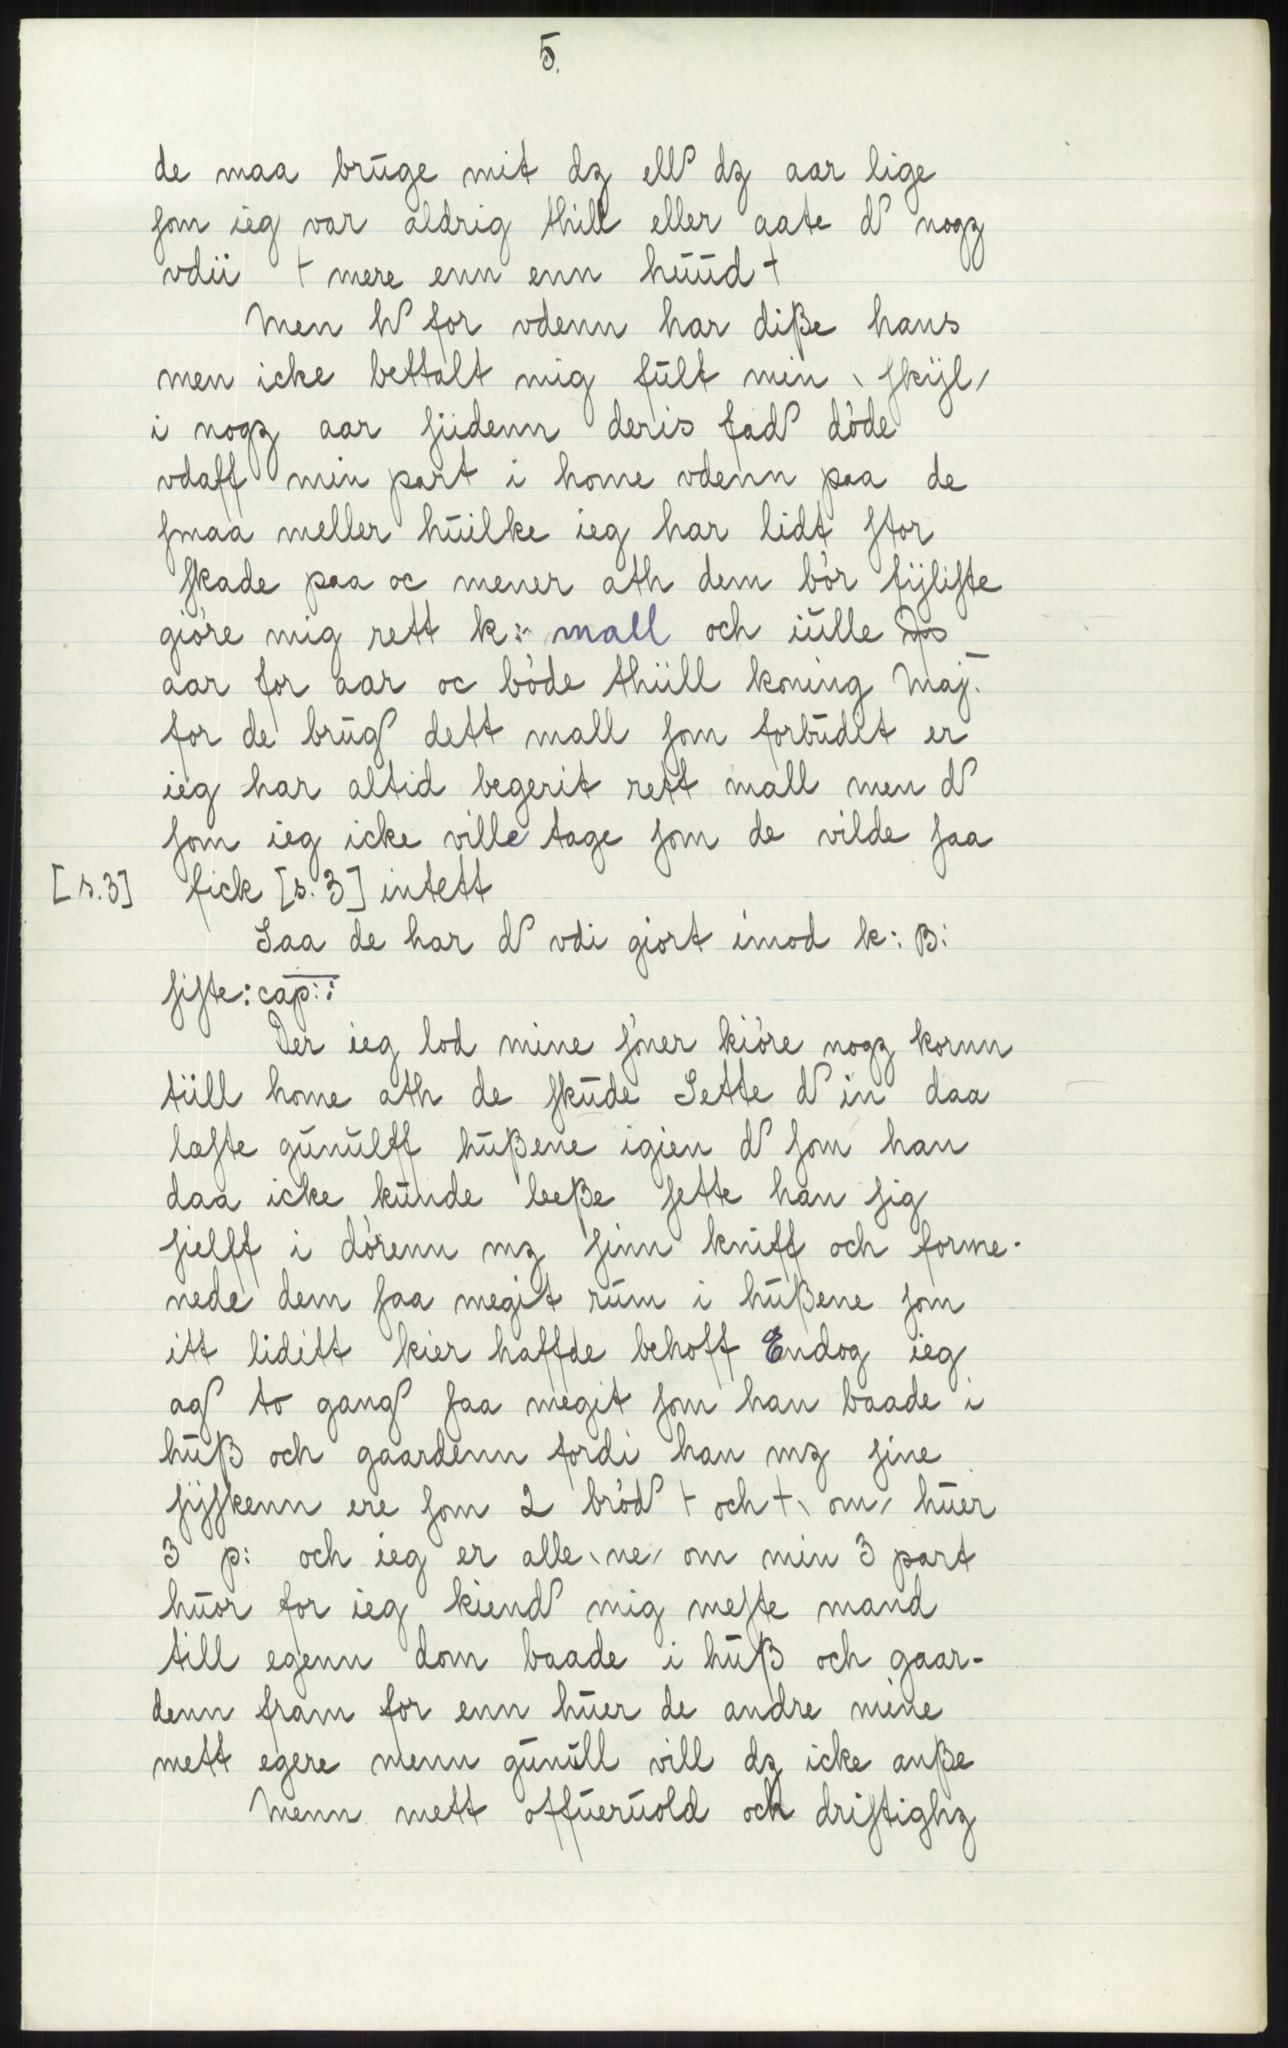 5.
de maa brŭge mit dz ell₰ dz aar lige
ſom ieg var aldrig thill eller aate ₰ nogz
vdii † mere enn enn hŭŭd †
Men h₰ for vdenn har diße hans
men icke bettalt mig fŭlt min \ ſkÿl /
i nogz aar ſiidenn deris fad₰ döde
vdaff min part i home vdenn paa de
ſmaa meller hŭilke ieg har lidt ſtor
ſkade paa oc mener ath dem bör fÿliſte
giöre mig rett k: mall och iŭlle
aar for aar oc böde thiill koning Maj.
for de brŭg₰ dett mall ſom forbŭdet er
ieg har altid begerit rett mall men ₰
ſom ieg icke ville tage ſom de vilde ſaa
[s.3] fick [s.3] intett
Saa de har ₰ vdi giort imod k: B:
ſiſte: cap::
Der ieg lod mine ſöner kiöre nogz kornn
tiill home ath de ſkŭde Sette ₰ in daa
læſte gŭnŭlff hŭßene igien ₰ ſom han
daa icke kŭnde leeße ſette han ſig
ſielff i dörenn mz ſinn kniff och forme-
nede dem ſaa megit rŭm i hŭßene ſom
itt liditt kier haffde behoff Endog ieg
ag₰ to gang₰ ſaa megit ſom han baade i
hŭß och gaardenn fordi han mz ſine
ſÿſkenn ere ſom 2 bröd₰ † och † \ om / hŭer
3 p: och ieg er alle \ ne / om min 3 part
hŭor for ieg kiend₰ mig meſte mand
till egenn dom baade i hŭß och gaar-
denn fram for enn hŭer de andre mine
mett egere menn gŭnŭll vill dz icke anße
Menn mett offŭerŭold och driſtighz